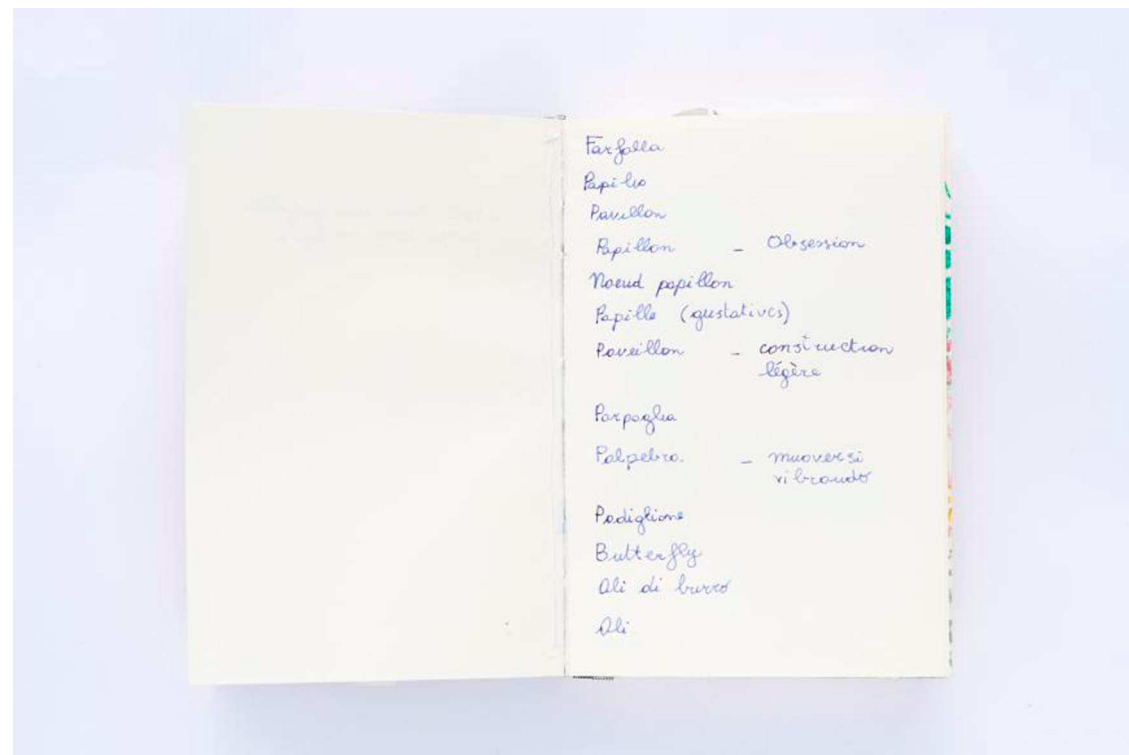 Farfalla
Papilio
Pavillon
Papillon – Obsession
Noeud papillon
Papille (gustatives)
Paveillon – construction
légère
Parpaglia
Palpebra. – muoversi
vibrando
Padiglione
Butterfly
Ali di burro
Ali